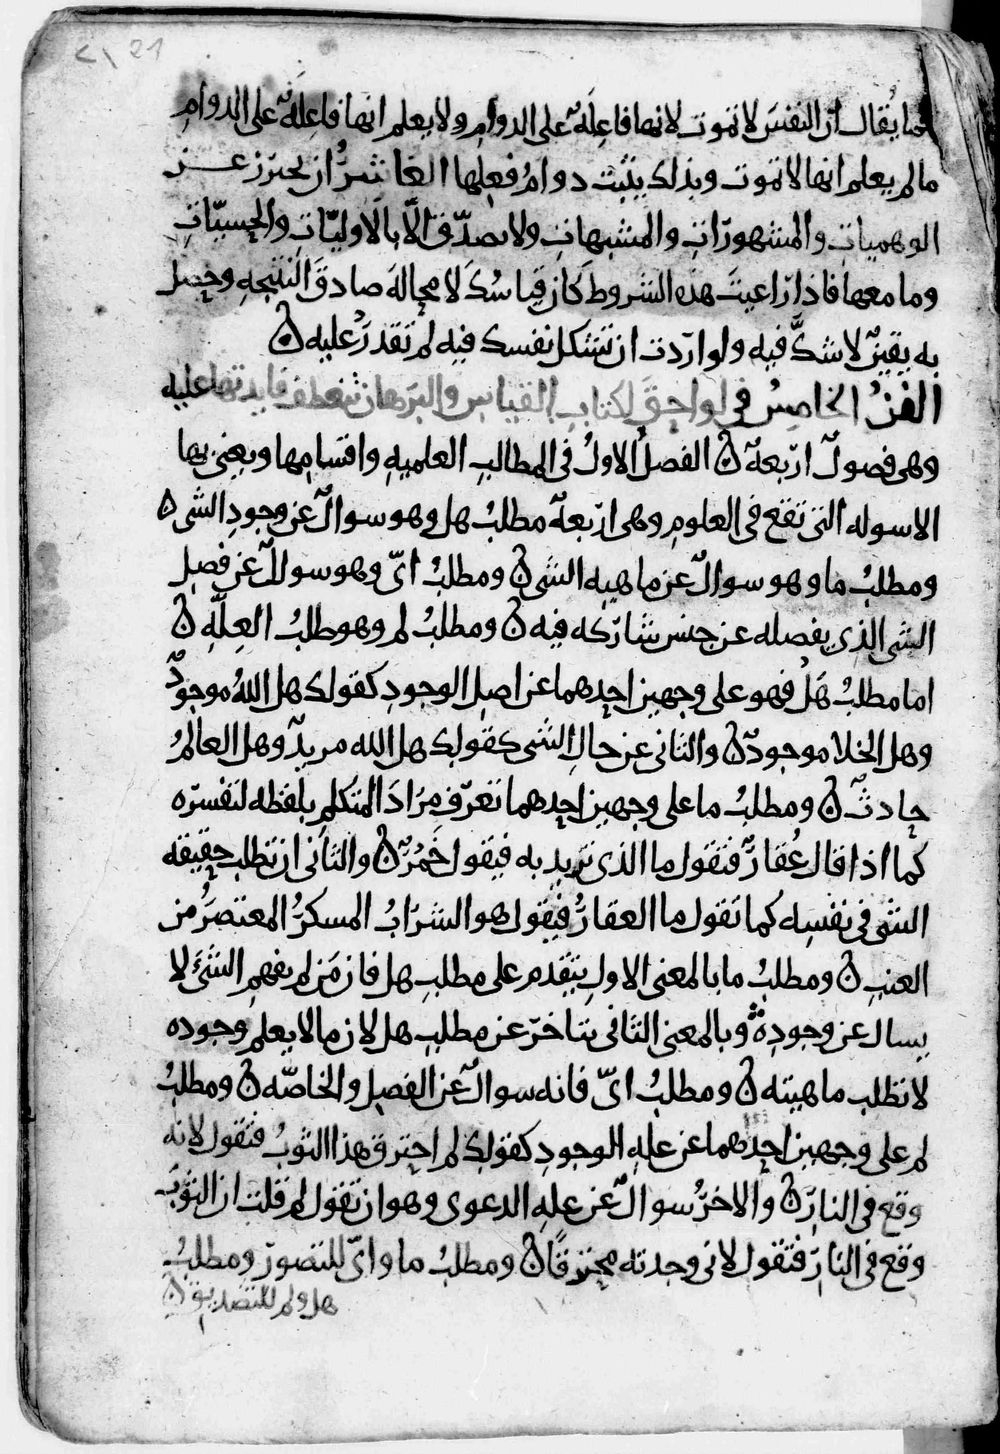 21 ٢١
كما يُقال ان النفسَ لا تموت لانها فاعِلَةٌ على الدوامِ ولا يعلم انها فاعِلَةٌ على الدوامِ
ما لم يعلم انها لا تموت وبذلك يثبت دوامُ فعلِها العاشرُ ان يحترز عن
الوهمياتِ والمشهورَاتِ والمشبهاتِ ولا يصدّق الَّا بالاوليّات والحِسيّاتِ
وما معها فاذا راعيتَ هذه الشروط كان قياسُكَ لا محالةَ صادقَ النتيجهِ وحصل
به يقينٌ لا شكَّ فيه ولو اردت ان تشكك نفسك فيه لم تقدرْ عليه ن
الفنُ الخامِسُ في لواحِقَ لكتابِ القياسِ والبرهان تنعطف فايدتها عليه
وهى فصولٌ اربعةٌ ن الفصلُ الاولُ فى المطالبِ العلميهِ واقسامِها ويعنى بها
الاسوله التى تقع فى العلومِ وهى اربعةٌ مطلبُ هل وهو سوالٌ عن وجودِ الشى ه
ومطلبُ ما وهو سوالٌ عن ماهيهِ الشى ن ومطلبُ اىّ وهو سوالٌ عن فصلِ
الشى الذى يفصله عن جنسٍ شاركه فيه ن ومطلبُ لم وهو طلبُ العِلّهِ ن
اما مطلبُ هَلْ فهو على وجهين احدهما عن اصلِ الوجودِ كقولك هل اللهُ موجودٌ
وهل الخلا موجودٌ ن والثانى عن حالِ الشى كقولك هل الله مريدٌ وهل العالمُ
حادثٌ ن ومطلبُ ما على وجهين احدهما تعرّف مرَادَ المتكلم بلفظه لتفسرَه
كما اذا قال عُقارٌ فتقول ما الذى تريد به فيقول خَمْرٌ ن والثانى ان تطلب حقيقه
الشى فى نفسِه كما تقول ما العقارُ فيقول هو الشرابُ المسكرُ المعتصرُ من
العنبِ ن ومطلبُ ما بالمعنى الاولِ يتقدم على مطلبِ هل فان مَن لم يفهمِ الشئَ لا
يسال عن وجودِهِ وبالمعنى الثانى يتاخر عن مطلبِ هل لان ما لا يعلم وجوده
لا تطلب ماهيته ن ومطلبُ اىّ فانه سوالٌ عن الفصلِ والخاصّه ن ومطلبُ
لم على وجهين احدهما عن علهِ الوجودِ كقولك لم احترق هذا الثوبُ فتقول لانه
وقع فى النارِ ن والاخرُ سوالٌ عن علهِ الدعوى وهو ان تقول لم قلت ان الثوبَ
وقع فى النارِ فتقول لانى وجدته محترقًا ن ومطلبُ ما واىّ للتصورِ ومطلبُ
هل ولم للتصديقِ ن